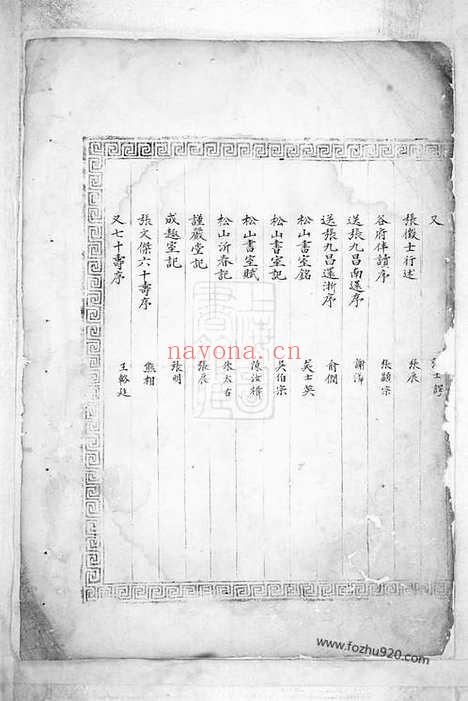 又
張徵士行述 張展
各府伴讀序 張顯宗
送張九昌南還序
送張九昌還浙序 俞僩
松山書室銘 吳士英
松山書室記 吳伯宗
松山書室賦
松山沂春記 朱太古
謹嚴堂記 張展
成趣室記 張明
張文傑六十壽序 熊相
又七十壽序
nayona.cn
www.fozhu920.com